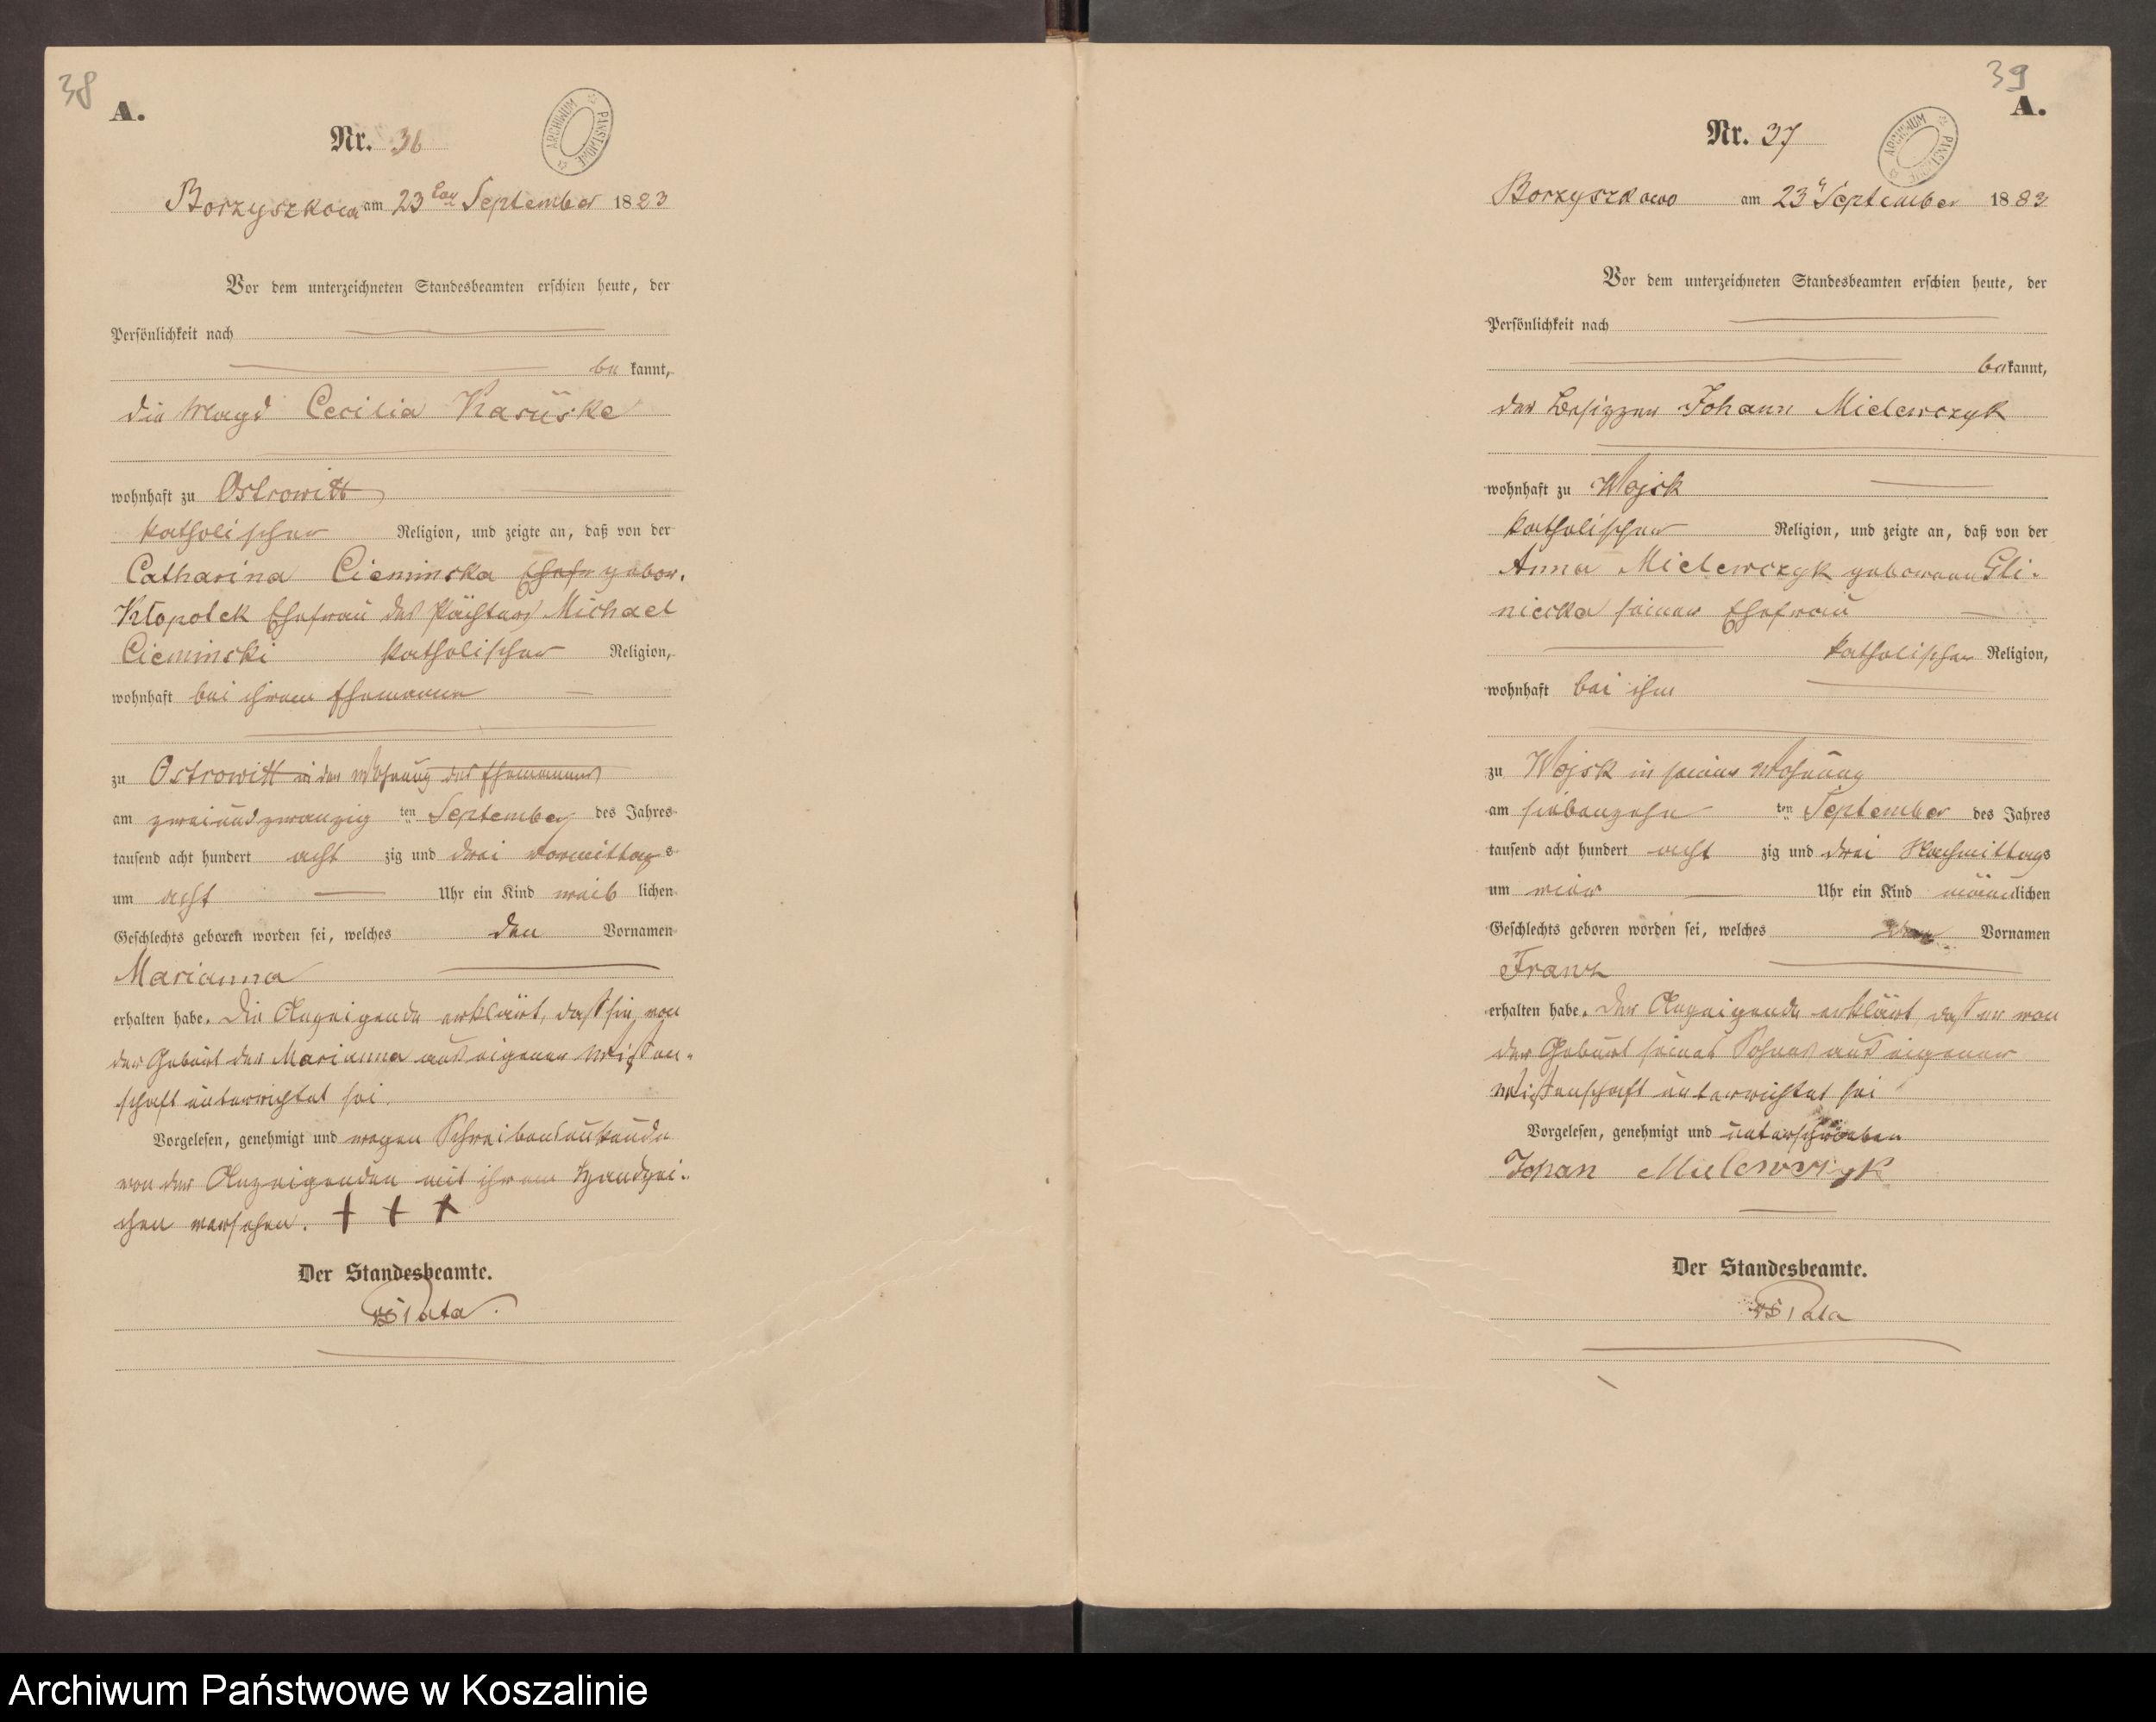 38
A.
ARCHIWUM PAŃSTWOWE
Nr. 36
Borzyszkowo am 23ten September 1883
Vor dem unterzeichneten Standesbeamten erschien heute, der
Persönlichkeit nach
be kannt,
die Magd Cecilia
wohnhaft zu Ostrowitt
katholischer Religion, und zeigte an, daß von der
Catharina Cieminska Ehefr gebor.
Kłopotek Ehefrau des Pächters Michael
Cieminski katholischer Religion,
wohnhaft bei ihrem Ehemanne
zu Ostrowitt in der Wohnung des Ehemannes
am zweiundzwanzig ten September des Jahres
tausend acht hundert acht zig und drei Vormittags
um acht Uhr ein Kind weib lichen
Geschlechts geboren worden sei, welches den Vornamen
Marianna
erhalten habe. Die Anzeigende erklärt, daß sie von
der Geburt der Marianna aus eigener Wissen-
schaft unterrichtet sei.
Vorgelesen, genehmigt und wegen Schreibensunkunde
von der Anzeigenden mit ihrem Handzei-
chen versehen. + + +
Der Standesbeamte.
39
A.
ARCHIWUM PAŃSTWOWE
Nr. 37
Borzyszkowo am 23t September 1883
Vor dem unterzeichneten Standesbeamten erschien heute, der
Persönlichkeit nach
bekannt,
der Besitzer Johann Mielewczyk
wohnhaft zu Wojsk
katholischer Religion, und zeigte an, daß von der
Anna Mielewczyk geborenen Gli-
niecka seiner Ehefrau
katholischer Religion,
wohnhaft bei ihm
zu Wojsk in seiner Wohnung
am siebenzehn ten September des Jahres
tausend acht hundert acht zig und drei Nachmittags
um vier Uhr ein Kind männlichen
Geschlechts geboren worden sei, welches den Vornamen
Franz
erhalten habe. Der Anzeigende erklärt, daß er von
der Geburt seines Sohnes aus eigener
Wissenschaft unterrichtet sei
Vorgelesen, genehmigt und unterschrieben
Johan Mielewczyk
Der Standesbeamte.
Archiwum Państwowe w Koszalinie